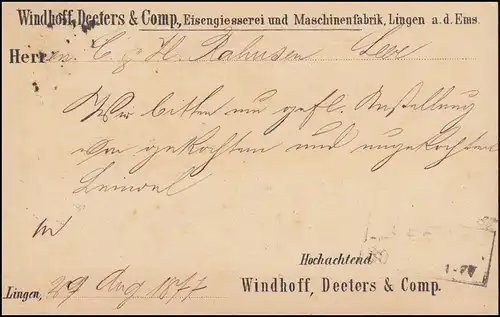 Windhoff, Deeters & Comp., Eisengiesserei und Maschinenfabrik, Lingen a. d. Ems.
Herren C. & H. Rahusen Leer
Wir bitten um gefl. Anstellung
von gekochten und ungekochten
Leinoel
in
Hochachtend
1-
Lingen, 29 Aug 1877 Windhoff, Deeters & Comp.